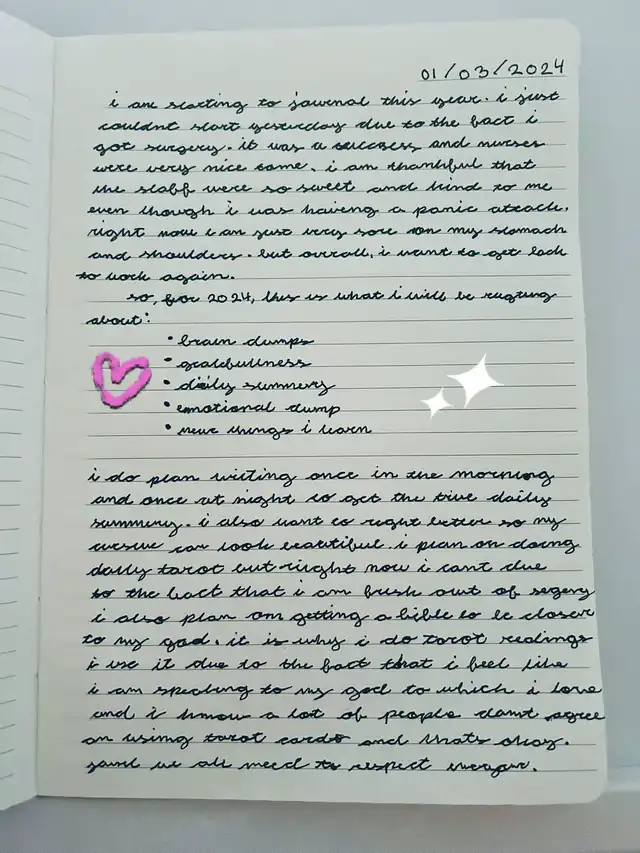 01/03/2024
i am starting to journal this year. i just
couldnt start yesterday due to the fact i
got surgery. it was a success and nurses
were very nice some. i am thankful that
the staff were so sweet and kind to me
even though i was haveng a panic attack.
right now i am just very sore on my stomach
and shoulders. but overall, i want to get back
to work again.
so, for 2024, this is what i will be
about:
• brain dumps
•
• daily summery
• emotional dump
• new things i learn
i do plan writing once in the morning
and once at night to get the true daily
summery. i also want to right better so my
cursive can look beautiful. i plan on doing
daily tarot but right now i cant due
to the fact that i am fresh out of
i also plan on getting a bible to be closer
to my god. it is why i do tarot readings
i use it due to the fact that i feel like
i am speaking to my god to which i love
and i know a lot of people dont agree
on using tarot cards and thats okay.
we all need to respect